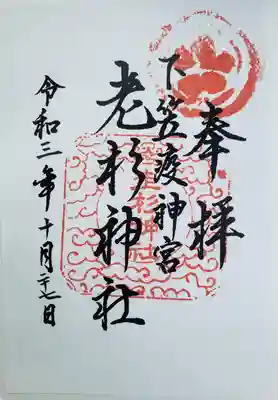 奉拝
下笠渡神宮
老杉神社
令和三年十月廿七日
老杉神社